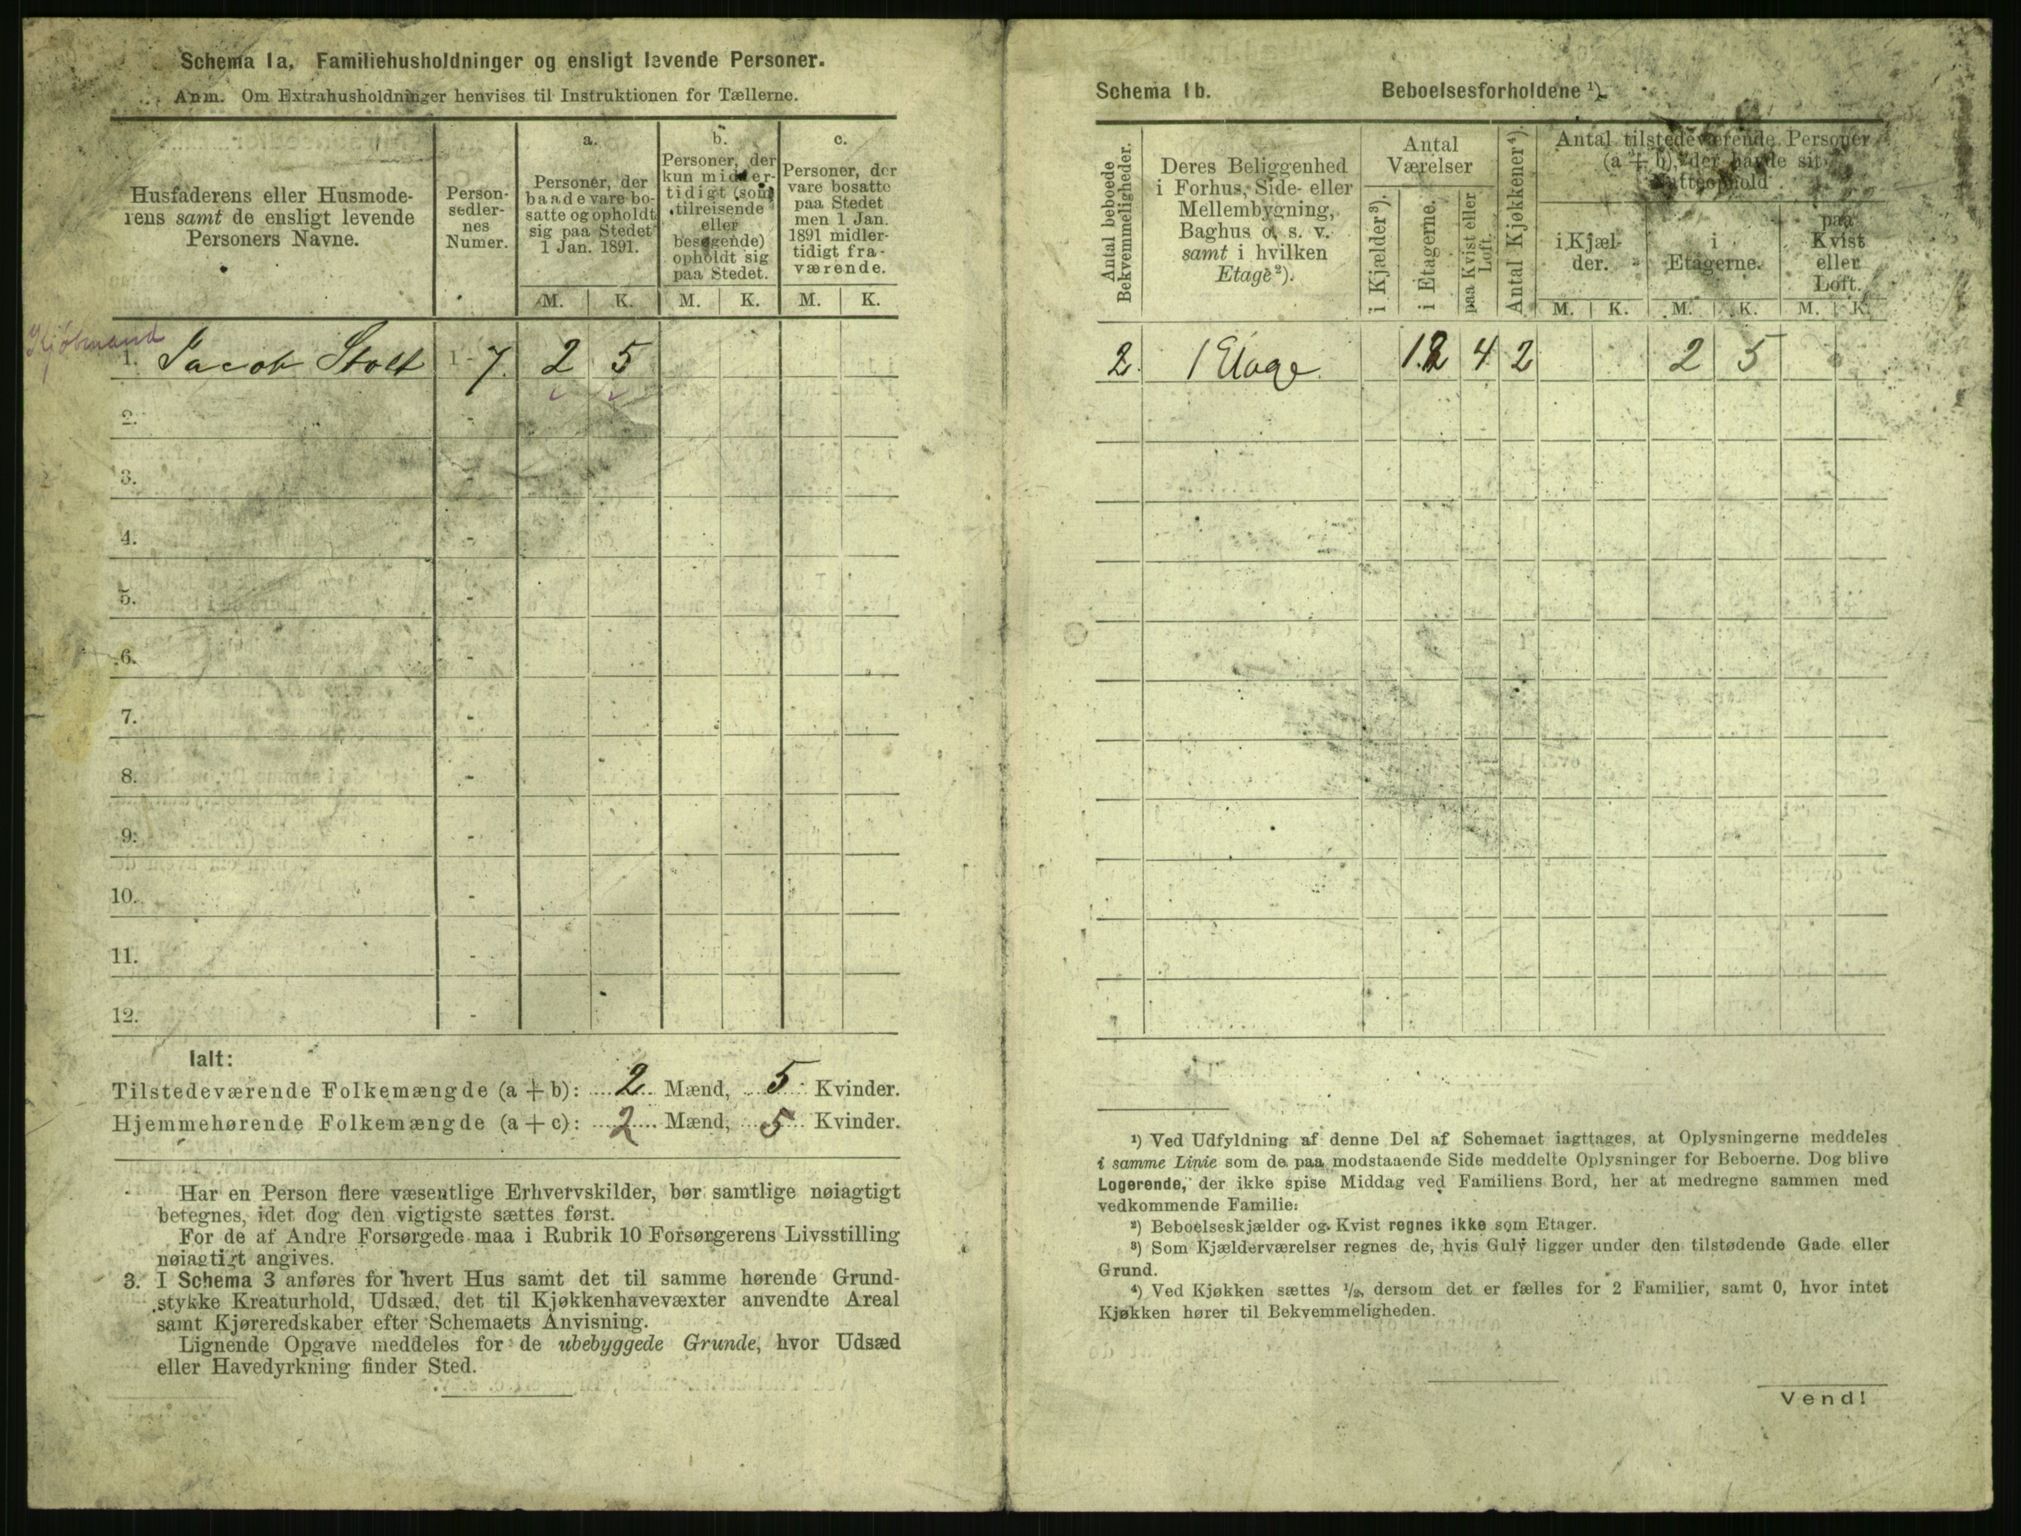 Schema 1a. Familiehusholdninger og ensligt levende Personer.
Anm. Om Extrahusholdninger henvises til Instruktionen for Tællerne.
Husfaderens eller Husmode-
rens samt de ensligt levende
Personers Navne.
Person-
sedler-
nes
Numer.
a.
Personer, der
baade vare bo-
satte og opholdt
sig paa Stedet
1 Jan. 1891.
b.
Personer, der
kun midler-
tidigt (som
tilreisende
eller
besøgende)
opholdt sig
paa Stedet.
c.
Personer, der
vare bosatte
paa Stedet
men 1 Jan.
1891 midler-
tidigt fra-
værende.
M. K. M. K. M. K.
Kjøbmand
1. Jacob Stolt 1 - 7. 2 5
2. -
3. -
4. -
5. -
6. -
7. -
8. -
9. -
10. -
11. -
12. -
Ialt:
Tilstedeværende Folkemængde (a + b): 2 Mænd, 5 Kvinder.
Hjemmehørende Folkemængde (a + c): 2 Mænd, 5 Kvinder.
Har en Person flere væsentlige Erhvervskilder, bør samtlige nøiagtigt
betegnes, idet dog den vigtigste sættes først.
For de af Andre Forsørgede maa i Rubrik 10 Forsørgerens Livsstilling
nøiagtigt angives.
3. I Schema 3 anføres for hvert Hus samt det til samme hørende Grund-
stykke Kreaturhold, Udsæd, det til Kjøkkenhavevæxter anvendte Areal
samt Kjøreredskaber efter Schemaets Anvisning.
Lignende Opgave meddeles for de ubebyggede Grunde, hvor Udsæd
eller Havedyrkning finder Sted.
Schema 1b. Beboelsesforholdene ¹).
Antal beboede
Bekvemmeligheder.
Deres Beliggenhed
i Forhus, Side- eller
Mellembygning,
Baghus o. s. v.
samt i hvilken
Etage ²).
Antal
Værelser
i Kjælder ³).
i Etagerne.
paa Kvist eller
Loft.
Antal Kjøkkener ⁴).
Antal tilstedeværende Personer
(a + b), der havde sit
Natteophold
i Kjæl-
der.
i
Etagerne.
paa
Kvist
eller
Loft.
M. K. M. K. M. K.
2. 1 Etage 12 4 2 2 5
¹) Ved Udfyldning af denne Del af Schemaet iagttages, at Oplysningerne meddeles
i samme Linie som de paa modstaaende Side meddelte Oplysninger for Beboerne. Dog blive
Logerende, der ikke spise Middag ved Familiens Bord, her at medregne sammen med
vedkommende Familie.
²) Beboelseskjælder og Kvist regnes ikke som Etager.
³) Som Kjælderværelser regnes de, hvis Gulv ligger under den tilstødende Gade eller
Grund.
⁴) Ved Kjøkken sættes ½, dersom det er fælles for 2 Familier, samt 0, hvor intet
Kjøkken hører til Bekvemmeligheden.
Vend!